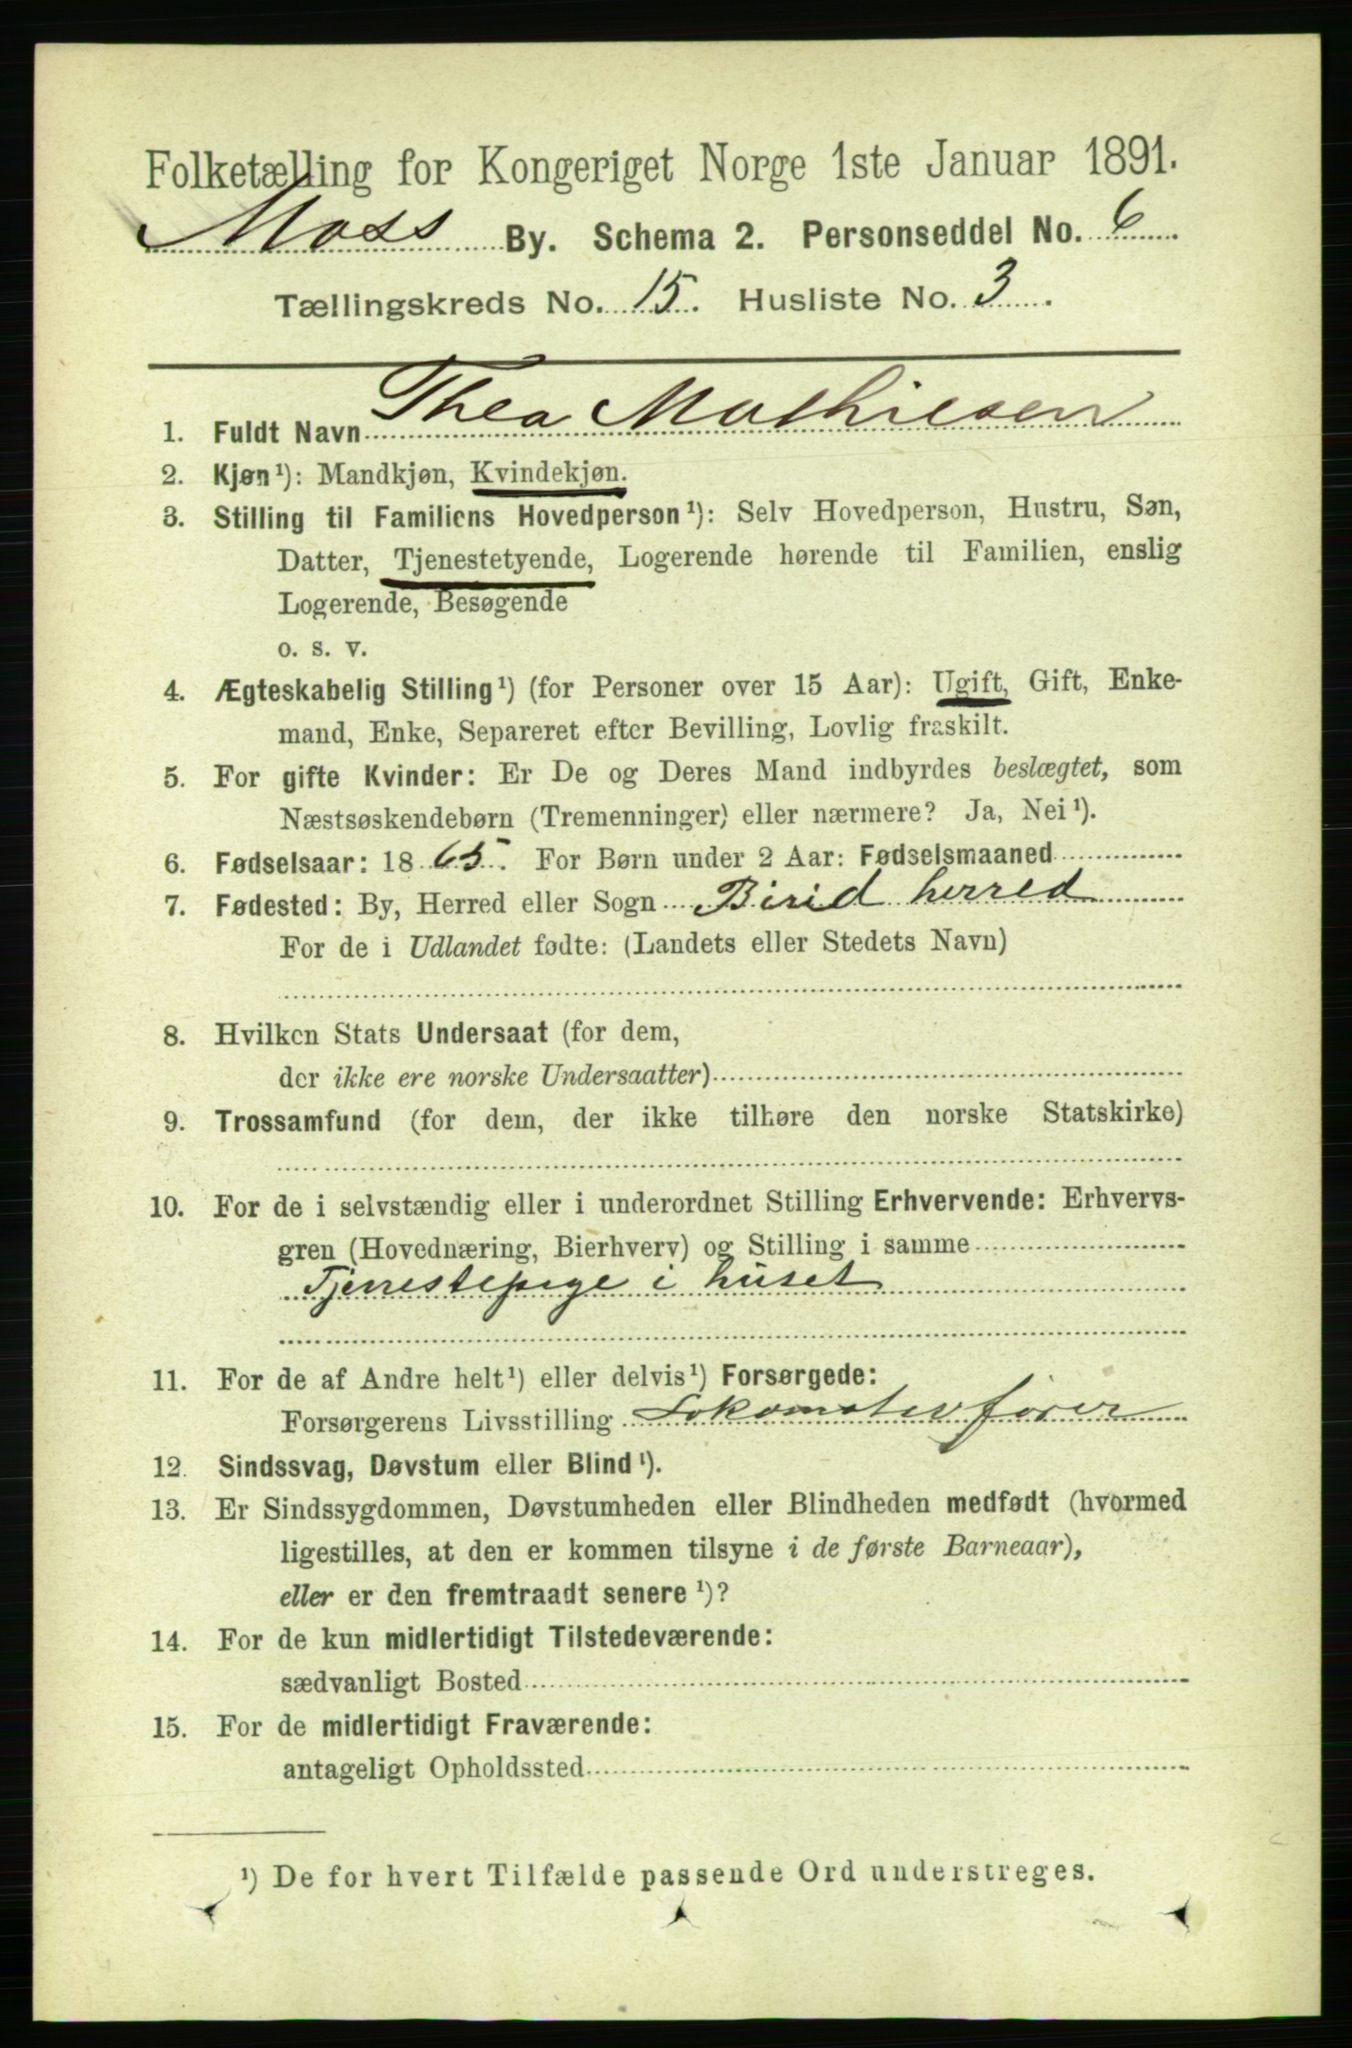 Folketælling for Kongeriget Norge 1ste Januar 1891.
Moss By. Schema 2. Personseddel No. 6
Tællingskreds No. 15. Husliste No. 3.
1. Fuldt Navn Thea Mathiesen
2. Kjøn¹): Mandkjøn, Kvindekjøn.
3. Stilling til Familiens Hovedperson¹): Selv Hovedperson, Hustru, Søn,
Datter, Tjenestetyende, Logerende hørende til Familien, enslig
Logerende, Besøgende
o. s. v.
4. Ægteskabelig Stilling¹) (for Personer over 15 Aar): Ugift, Gift, Enke-
mand, Enke, Separeret efter Bevilling, Lovlig fraskilt.
5. For gifte Kvinder: Er De og Deres Mand indbyrdes beslægtet, som
Næstsøskendebørn (Tremenninger) eller nærmere? Ja, Nei¹).
6. Fødselsaar: 1865. For Børn under 2 Aar: Fødselsmaaned
7. Fødested: By, Herred eller Sogn Birid herred
For de i Udlandet fødte: (Landets eller Stedets Navn)
8. Hvilken Stats Undersaat (for dem,
der ikke ere norske Undersaatter)
9. Trossamfund (for dem, der ikke tilhøre den norske Statskirke)
10. For de i selvstændig eller i underordnet Stilling Erhvervende: Erhvervs-
gren (Hovednæring, Bierhverv) og Stilling i samme
Tjenestepige i huset
11. For de af Andre helt¹) eller delvis¹) Forsørgede:
Forsørgerens Livsstilling Lokomotivfører
12. Sindssvag, Døvstum eller Blind¹).
13. Er Sindssygdommen, Døvstumheden eller Blindheden medfødt (hvormed
ligestilles, at den er kommen tilsyne i de første Barneaar),
eller er den fremtraadt senere¹)?
14. For de kun midlertidigt Tilstedeværende:
sædvanligt Bosted
15. For de midlertidigt Fraværende:
antageligt Opholdssted
¹) De for hvert Tilfælde passende Ord understreges.